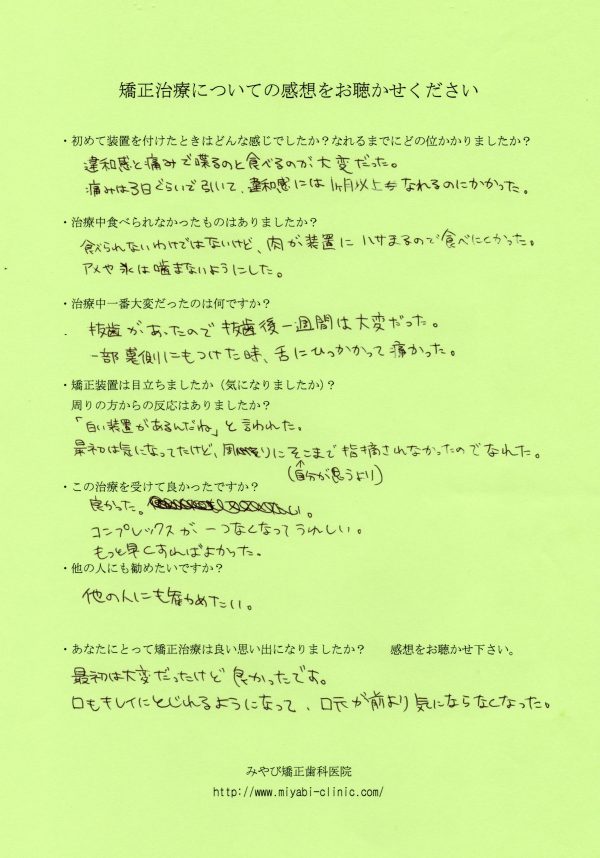 矯正治療についての感想をお聴かせください
・初めて装置を付けたときはどんな感じでしたか？なれるまでにどの位かかりましたか？
違和感と痛みで喋るのと食べるのが大変だった。
痛みは3日ぐらいで引いて、違和感には1ヶ月以上なれるのにかかった。
・治療中食べられなかったものはありましたか？
食べられないわけではないけど、肉が装置にハサまるので食べにくかった。
アメや氷は噛まないようにした。
・治療中一番大変だったのは何ですか？
抜歯があったので抜歯後一週間は大変だった。
一部裏側にもつけた時、舌にひっかかって痛かった。
・矯正装置は目立ちましたか（気になりましたか）？
周りの方からの反応はありましたか？
「白い装置があるんだね」と言われた。
最初は気になってたけど、周りにそこまで指摘されなかったのでなれた。
（自分が思うより）
・この治療を受けて良かったですか？
良かった。
コンプレックスが一つなくなってうれしい。
もっと早くすればよかった。
・他の人にも勧めたいですか？
他の人にも勧めたい。
・あなたにとって矯正治療は良い思い出になりましたか？　感想をお聴かせ下さい。
最初は大変だったけど良かったです。
口もキレイにとじれるようになって、口元が前より気にならなくなった。
みやび矯正歯科医院
http://www.miyabi-clinic.com/